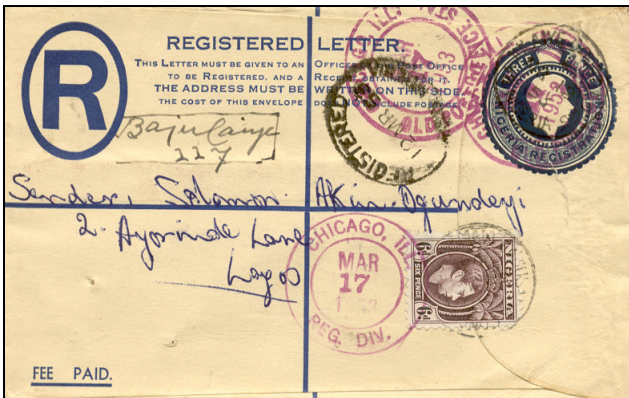 REGISTERED LETTER.
THIS LETTER MUST BE GIVEN TO AN OFFICER OF THE POST OFFICE
TO BE REGISTERED, AND A RECEIPT OBTAINED FOR IT.
THE ADDRESS MUST BE WRITTEN ON THIS SIDE.
THE COST OF THIS ENVELOPE DOES NOT INCLUDE POSTAGE
R
227
THREE PENCE
NIGERIA REGISTRATION
REGISTERED
Sender, Solomon Akin Ogundeyi
2 Ayorinde Lane
Lagos
CHICAGO, ILL.
MAR
17
1953
REG. DIV.
NIGERIA
SIX PENCE
6d
6d
FEE PAID.